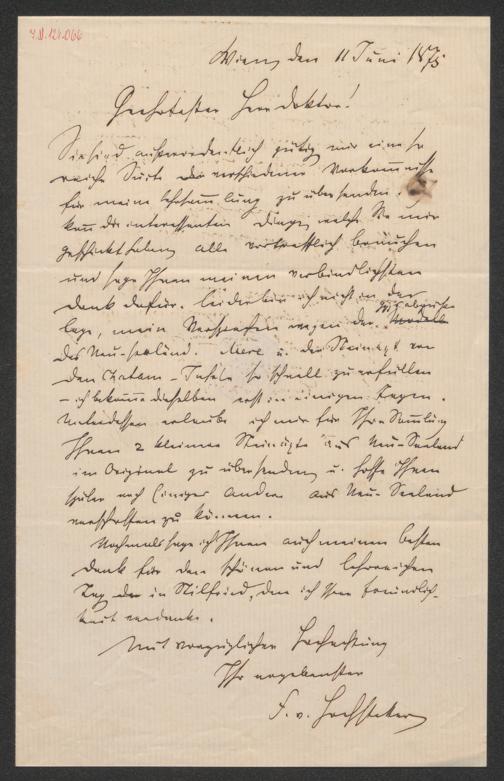 J.N. 124.066
Wien, den 11 Juni 1875
Geehrtester Herr Doktor!
Sie sind außerordentlich gütig mir eine so
reiche Suite verschiedener Vorkommnisse
für meine Lehrsammlung zu übersenden. Ich
kann die interessanten Dinge, welche Sie mir
geschickt haben, alle vortrefflich brauchen
und sage Ihnen meinen verbindlichsten
Dank dafür. Leider bin ich nicht in der
Lage, mein Versprechen wegen der Gypsabgüße
des Neu-Seeländ. Mere u. der Steinaxt von
den Chatam-Inseln so schnell zu erfüllen
– ich bekomme dieselben erst in einigen Tagen.
Unterdessen erlaube ich mir für Ihre Samlung
Ihnen 2 kleine Steinäxte aus Neu-Seeland
im Original zu übersenden, u. hoffe Ihnen
später noch Einiges Andere aus Neu-Seeland
verschaffen zu können.
Nochmals sage ich Ihnen auch meinen besten
Dank für den schönen und lehrreichen
Tag in Stilfried, den ich Ihrer Freundlich-
keit verdanke.
Mit vorzüglicher Hochachtung
Ihr ergebenster
F. v. Hochstetter